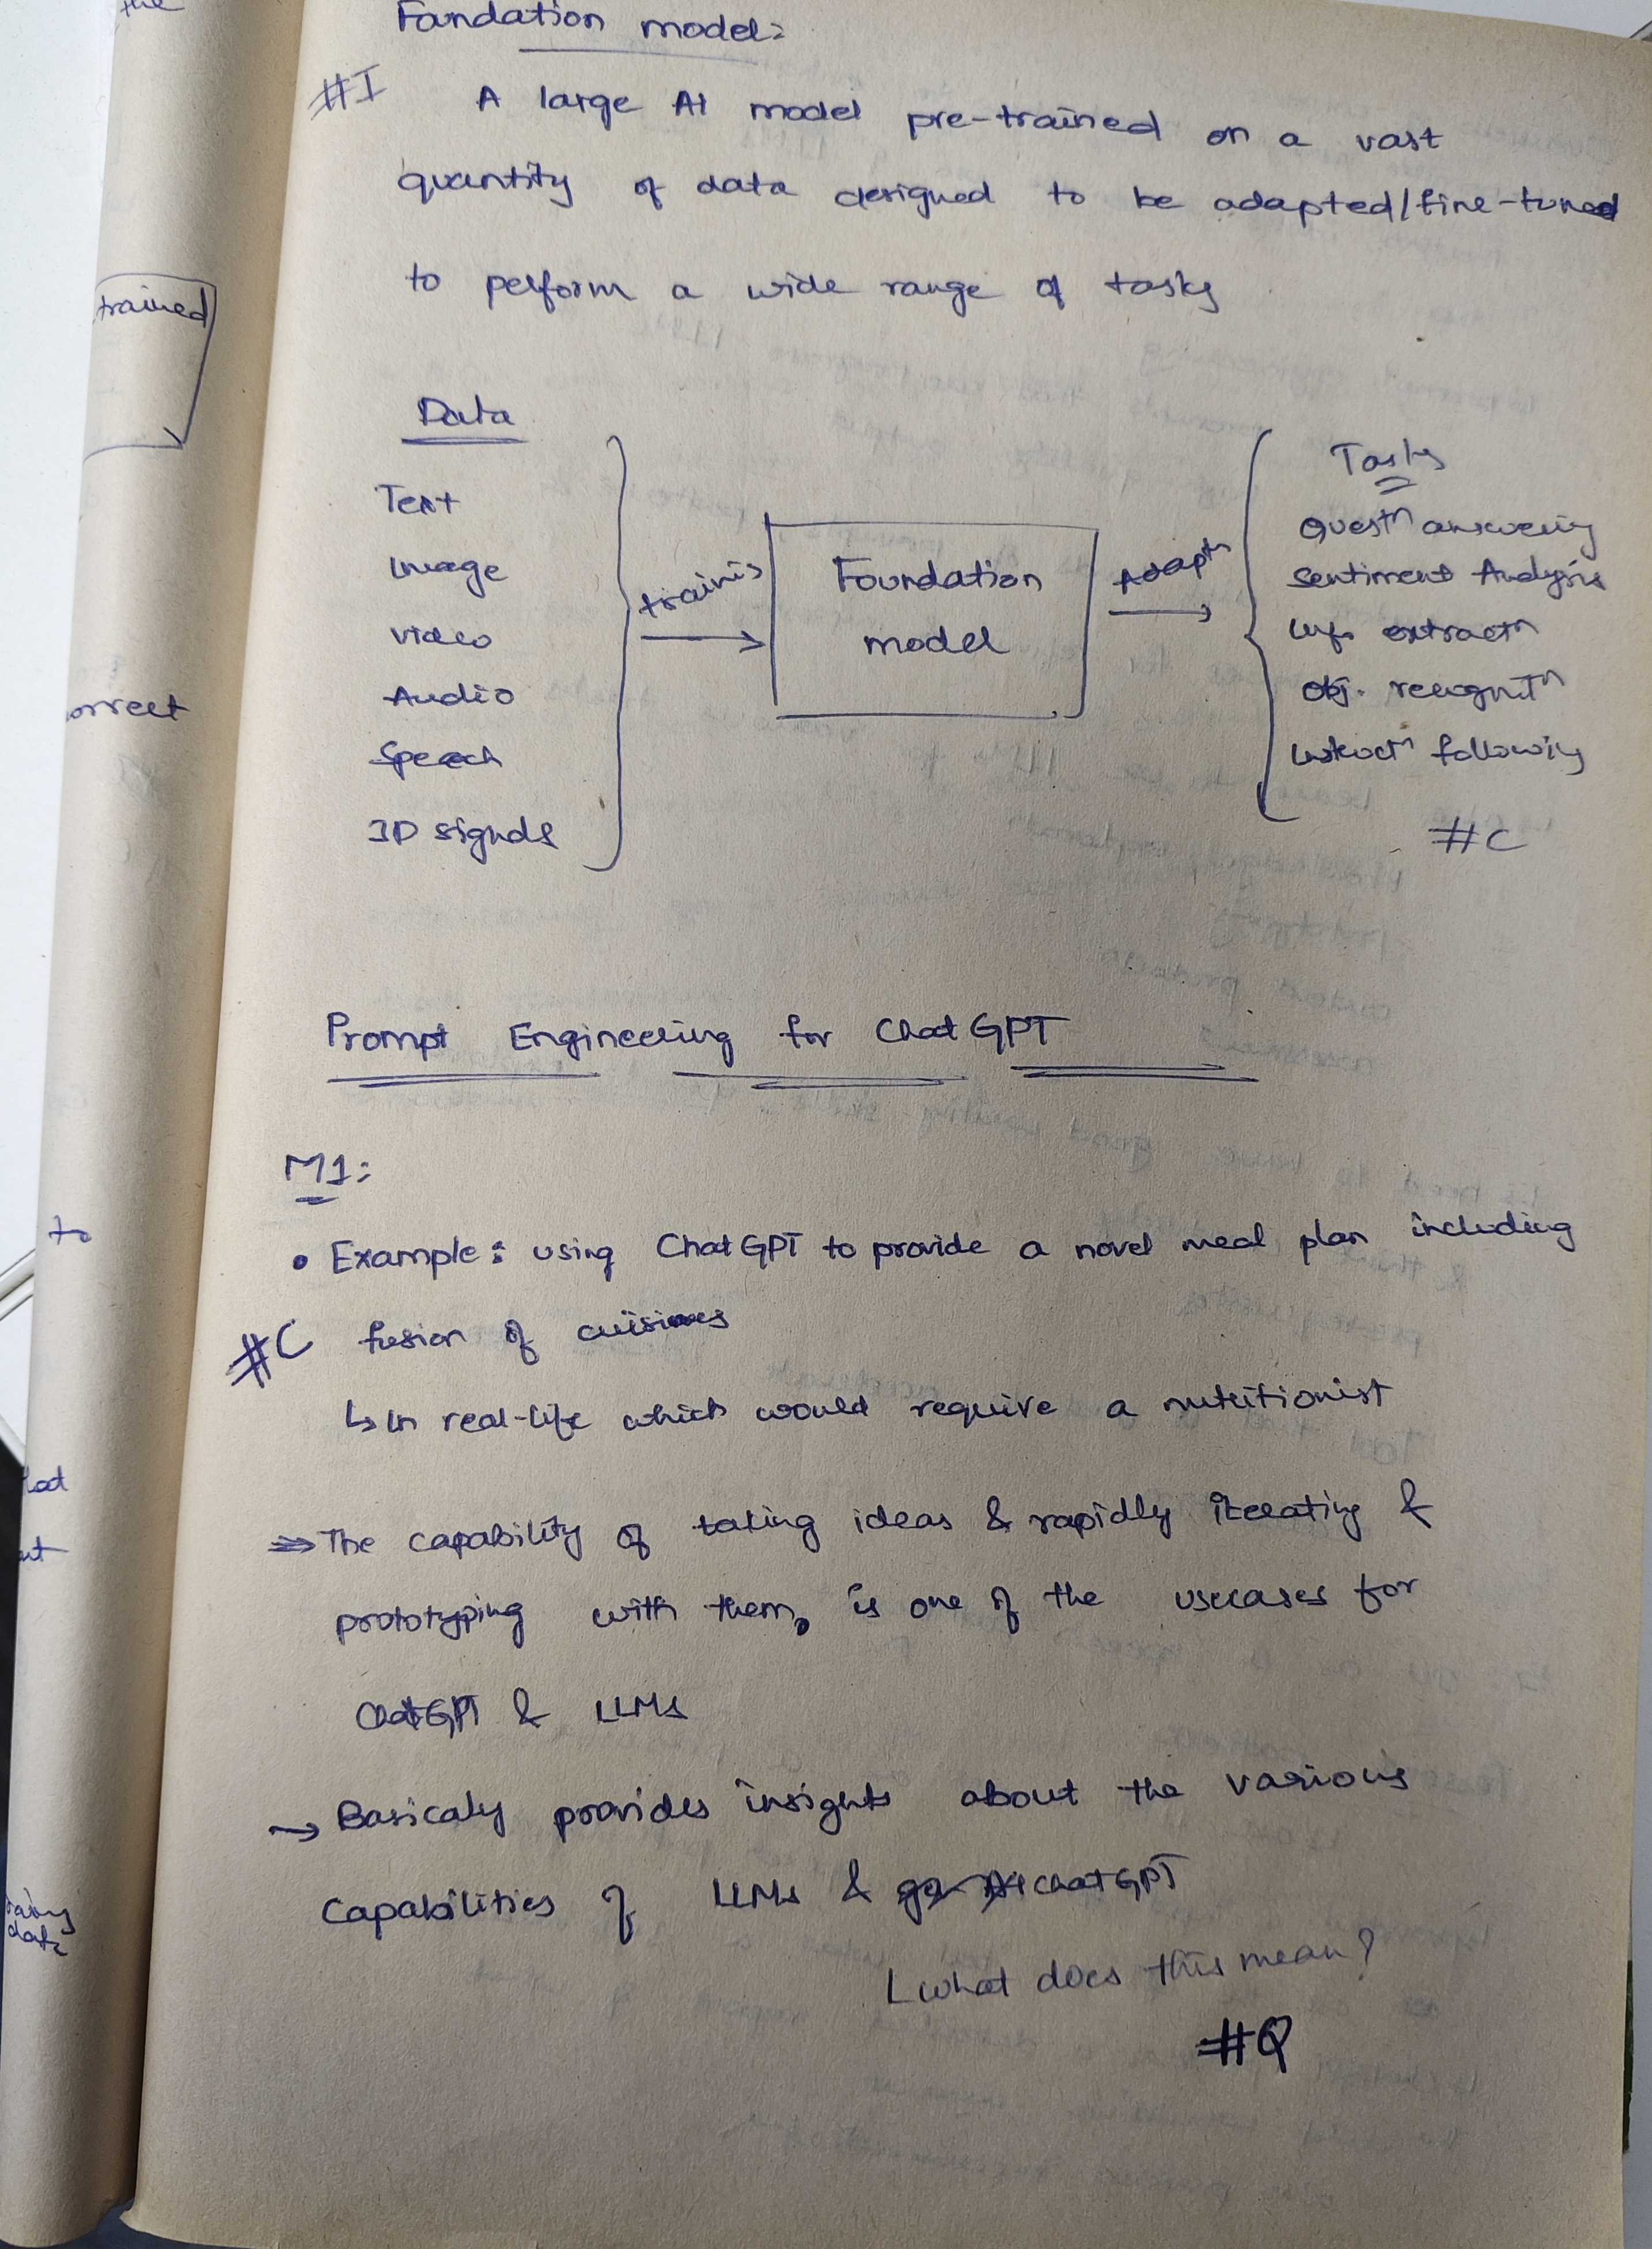 the
Foundation model:
#I A large AI model pre-trained on a vast
quantity of data designed to be adapted/fine-tuned
to perform a wide range of tasks
trained
Data
Text
Image
Video
Audio
Speech
3D signals
training
Foundation
model
Adaptn
Tasks
Questn answering
Sentiment Analysis
Info extractn
Obj. recognitn
Instructn following
#C
orrect
Prompt Engineering for ChatGPT
M1:
• Example: using ChatGPT to provide a novel meal plan including
#C fusion of cuisines
↳ In real-life which would require a nutritionist
to
⇒ The capability of taking ideas & rapidly iterating &
prototyping with them, is one of the usecases for
ChatGPT & LLMs
→ Basicaly provides insights about the various
Capabilities of LLMs & ChatGPT
what does this mean?
#Q
data